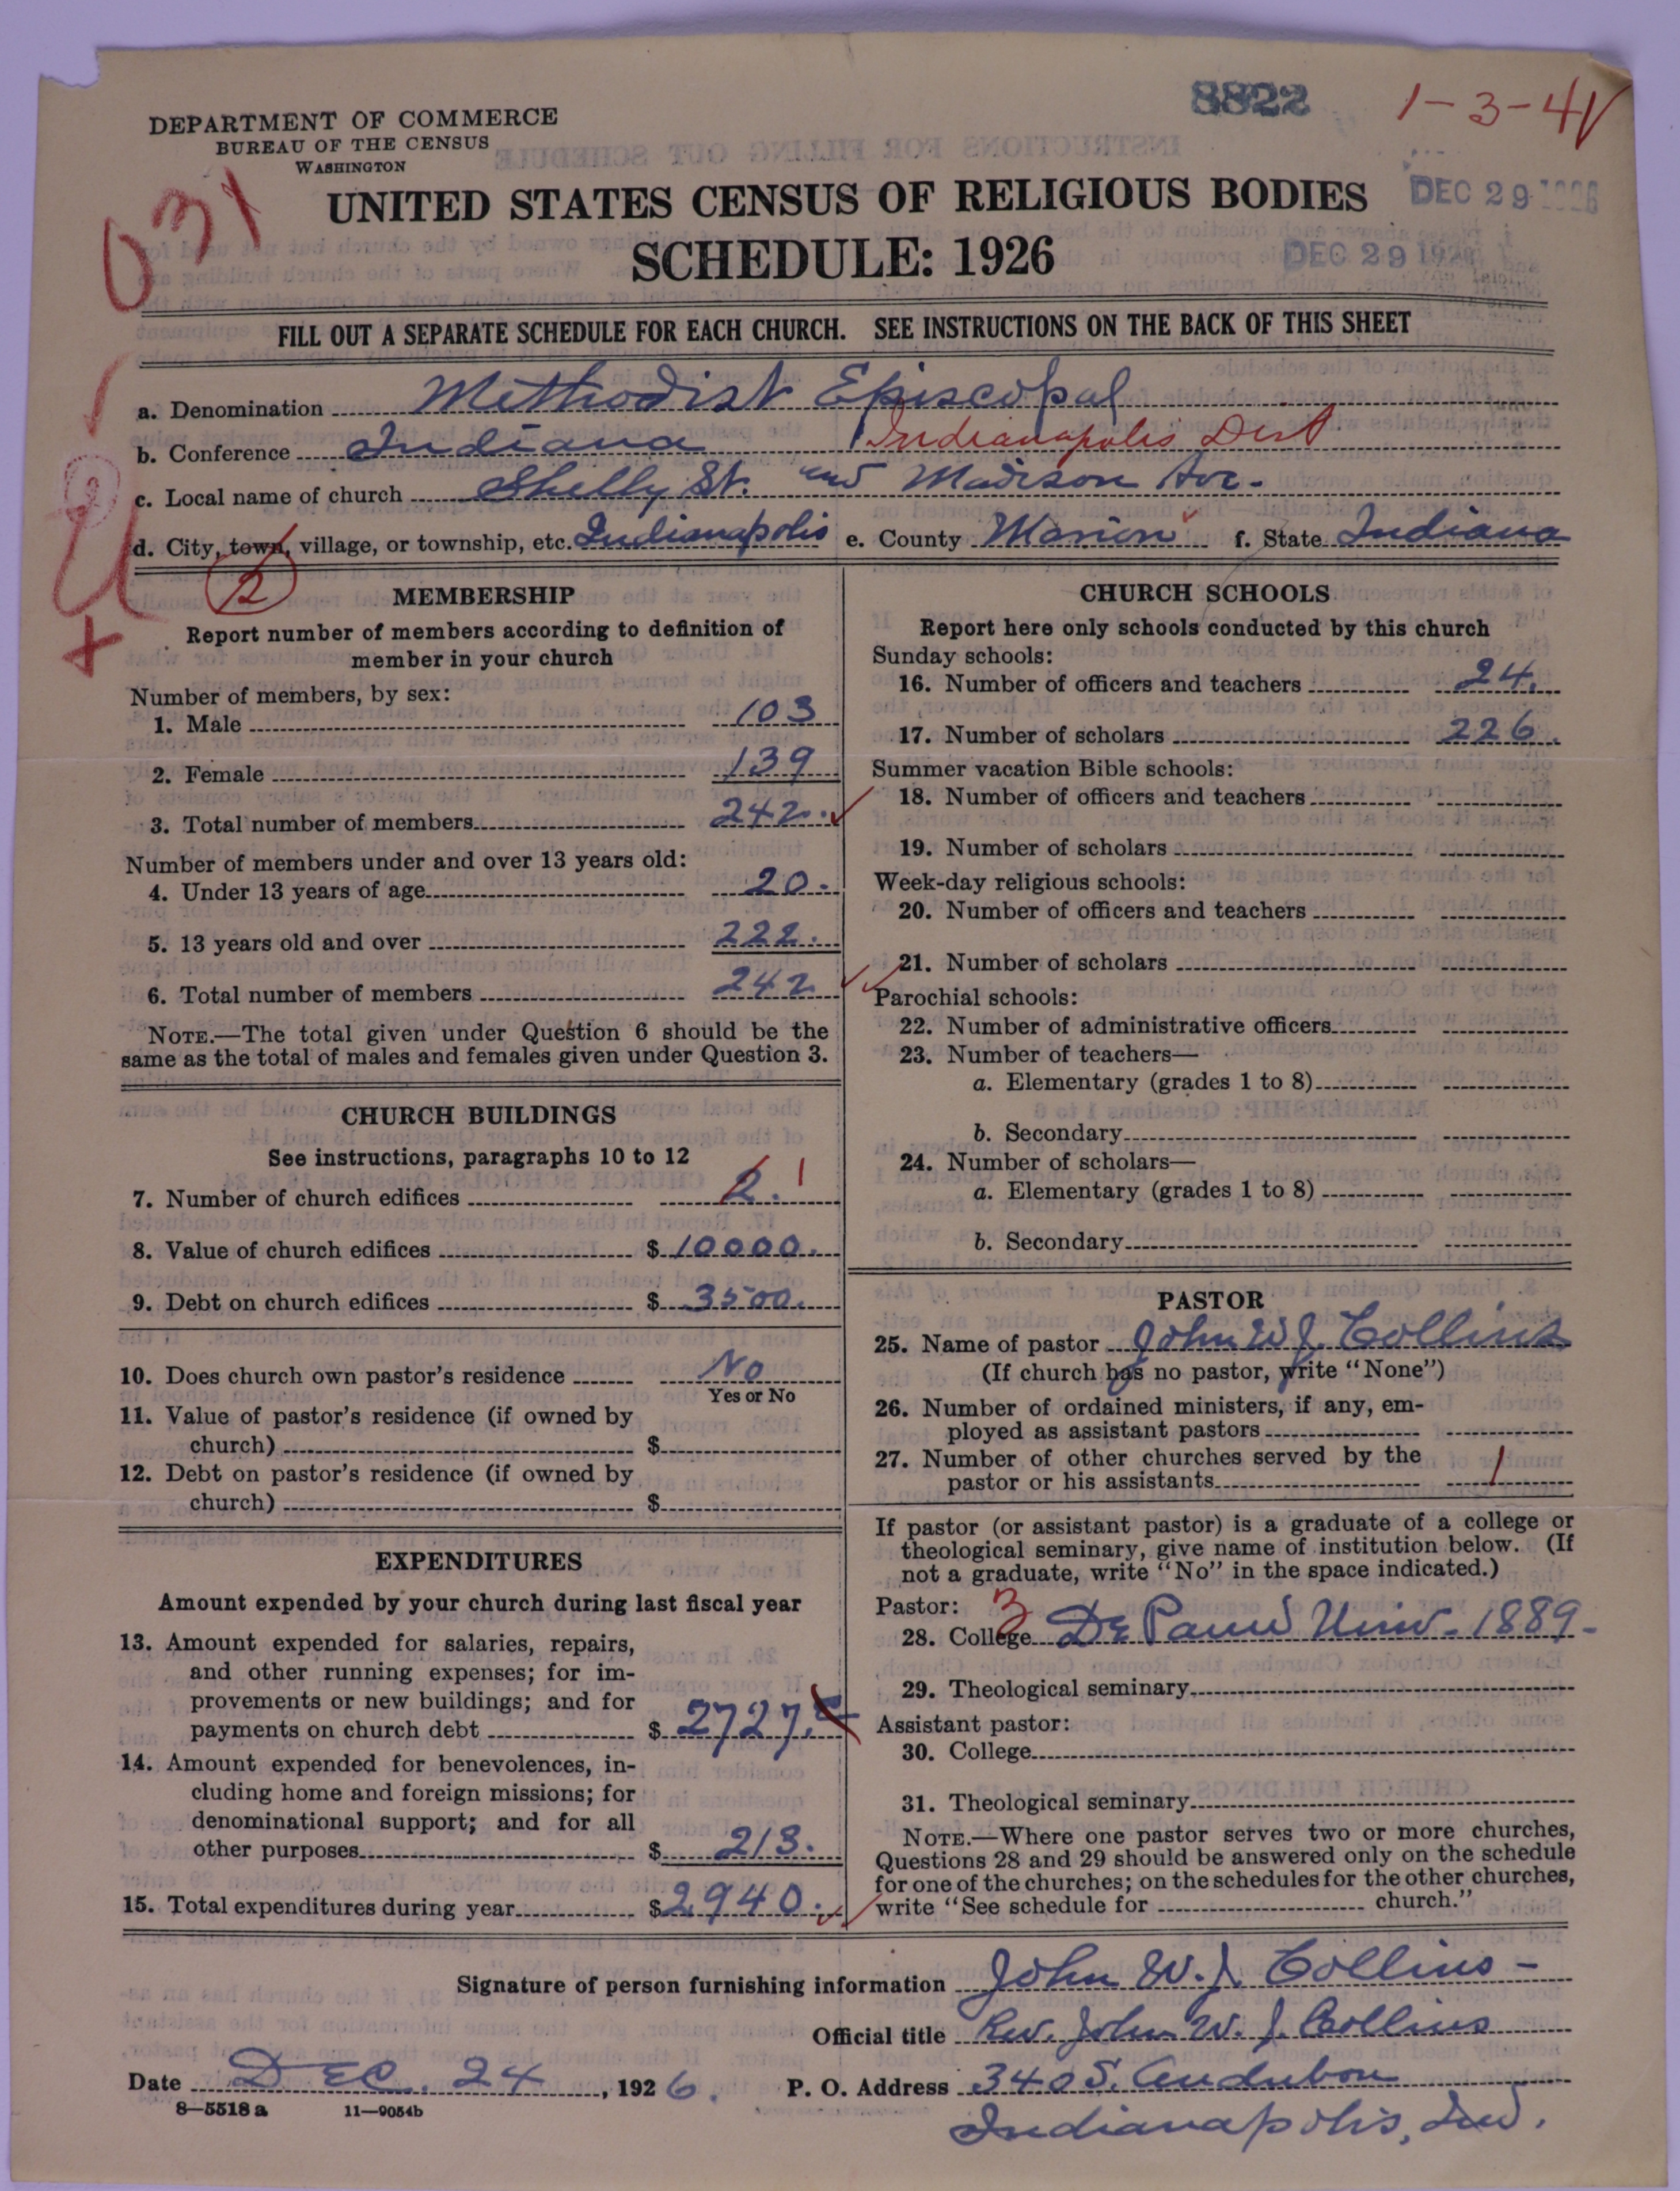 8822
1-3-41
DEPARTMENT OF COMMERCE
BUREAU OF THE CENSUS
WASHINGTON
031
UNITED STATES CENSUS OF RELIGIOUS BODIES
DEC 29
SCHEDULE: 1926
DEC 29 1926
FILL OUT A SEPARATE SCHEDULE FOR EACH CHURCH. SEE INSTRUCTIONS ON THE BACK OF THIS SHEET
a. Denomination Methodist Episcopal
b. Conference Indiana Indianapolis Dist.
c. Local name of church Shelly St. and Madison Ave.
d. City, town, village, or township, etc. Indianapolis e. County Marion f. State Indiana
2
MEMBERSHIP
Report number of members according to definition of
member in your church
Number of members, by sex:
1. Male 103
2. Female 139
3. Total number of members 242.
Number of members under and over 13 years old:
4. Under 13 years of age 20.
5. 13 years old and over 222.
6. Total number of members 242
NOTE.—The total given under Question 6 should be the
same as the total of males and females given under Question 3.
CHURCH BUILDINGS
See instructions, paragraphs 10 to 12
7. Number of church edifices 2. 1
8. Value of church edifices $ 10000.
9. Debt on church edifices $ 3500.
10. Does church own pastor's residence No
Yes or No
11. Value of pastor's residence (if owned by
church) $
12. Debt on pastor's residence (if owned by
church) $
EXPENDITURES
Amount expended by your church during last fiscal year
13. Amount expended for salaries, repairs,
and other running expenses; for im-
provements or new buildings; and for
payments on church debt $ 2727.
14. Amount expended for benevolences, in-
cluding home and foreign missions; for
denominational support; and for all
other purposes $ 213.
15. Total expenditures during year $ 2940.
CHURCH SCHOOLS
Report here only schools conducted by this church
Sunday schools:
16. Number of officers and teachers 24.
17. Number of scholars 226.
Summer vacation Bible schools:
18. Number of officers and teachers
19. Number of scholars
Week-day religious schools:
20. Number of officers and teachers
21. Number of scholars
Parochial schools:
22. Number of administrative officers
23. Number of teachers—
a. Elementary (grades 1 to 8)
b. Secondary
24. Number of scholars—
a. Elementary (grades 1 to 8)
b. Secondary
PASTOR
25. Name of pastor John W. J. Collins
(If church has no pastor, write "None")
26. Number of ordained ministers, if any, em-
ployed as assistant pastors
27. Number of other churches served by the
pastor or his assistants 1
If pastor (or assistant pastor) is a graduate of a college or
theological seminary, give name of institution below. (If
not a graduate, write "No" in the space indicated.)
Pastor: 3
28. College De Pauw Univ. 1889-
29. Theological seminary
Assistant pastor:
30. College
31. Theological seminary
NOTE.—Where one pastor serves two or more churches,
Questions 28 and 29 should be answered only on the schedule
for one of the churches; on the schedules for the other churches,
write "See schedule for church."
Signature of person furnishing information John W. J. Collins-
Official title Rev. John W. J. Collins
Date DEC. 24, 1926. P. O. Address 340 S. Audubon
8—5518 a 11—9054b
Indianapolis, Ind.